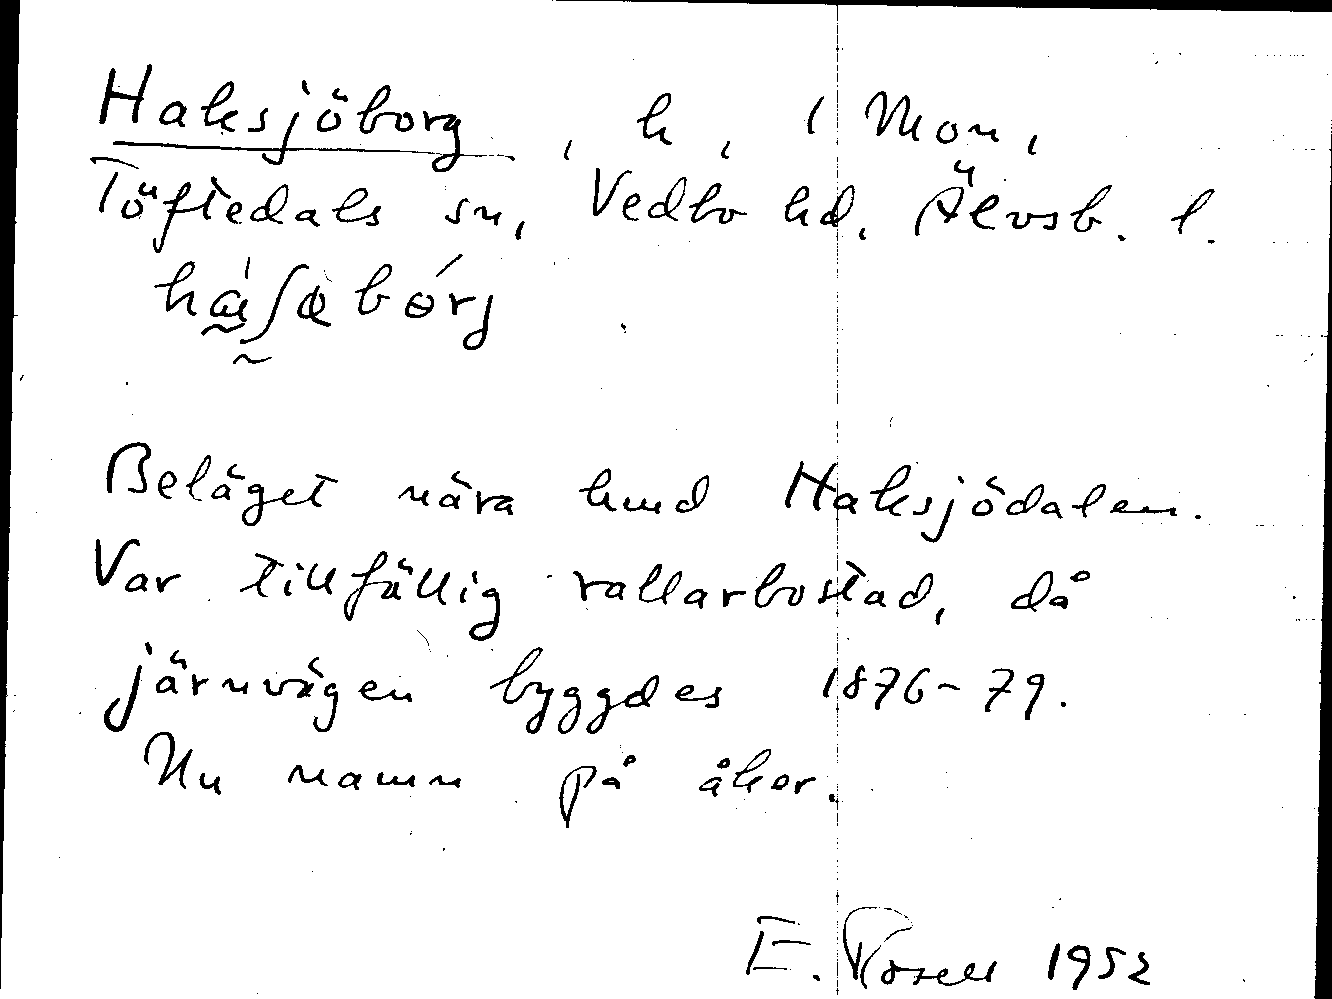 Haksjöborg, h, 1 Mon,
Töftedals sn, Vedbo hd, Älvsb. l.
Beläget nära hmd Haksjödalen.
Var tillfällig rallarbostad, då
järnvägen byggdes 1876-79.
Nu namn på åker.
E. Rosell 1952